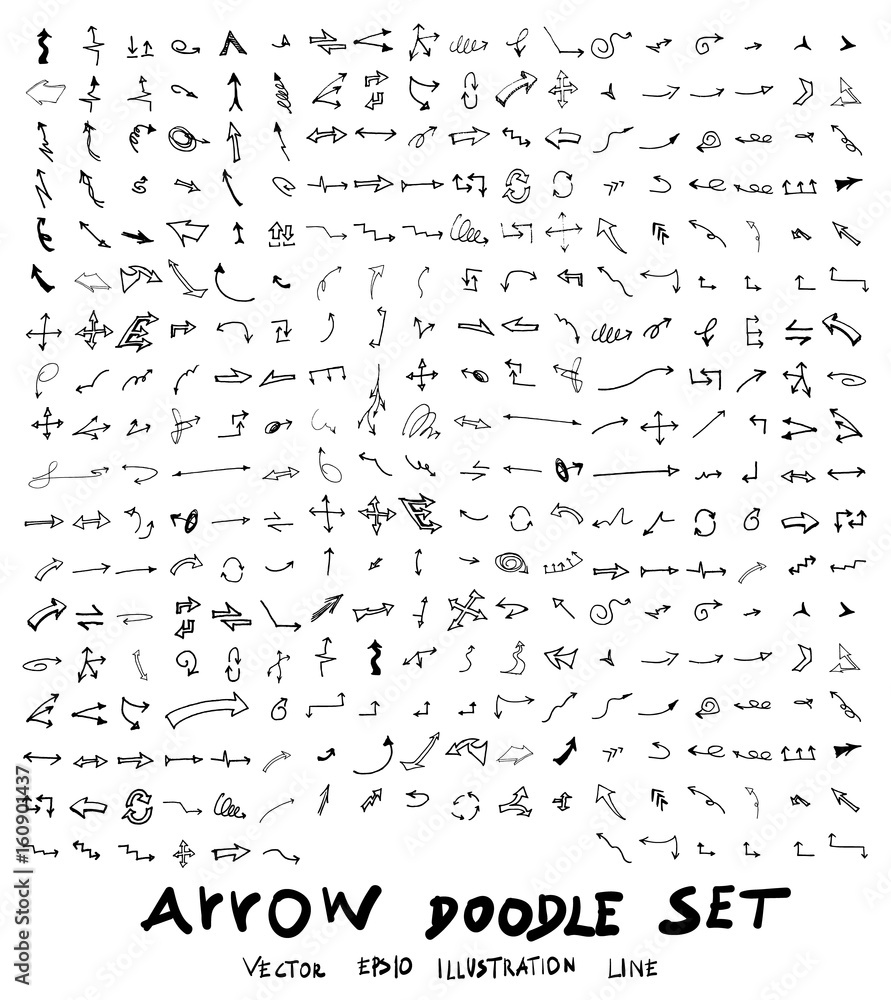 ArrOW DOODLE SET
VECTOR EPS10 ILLUSTRATION LINE
Adobe Stock | #160901437